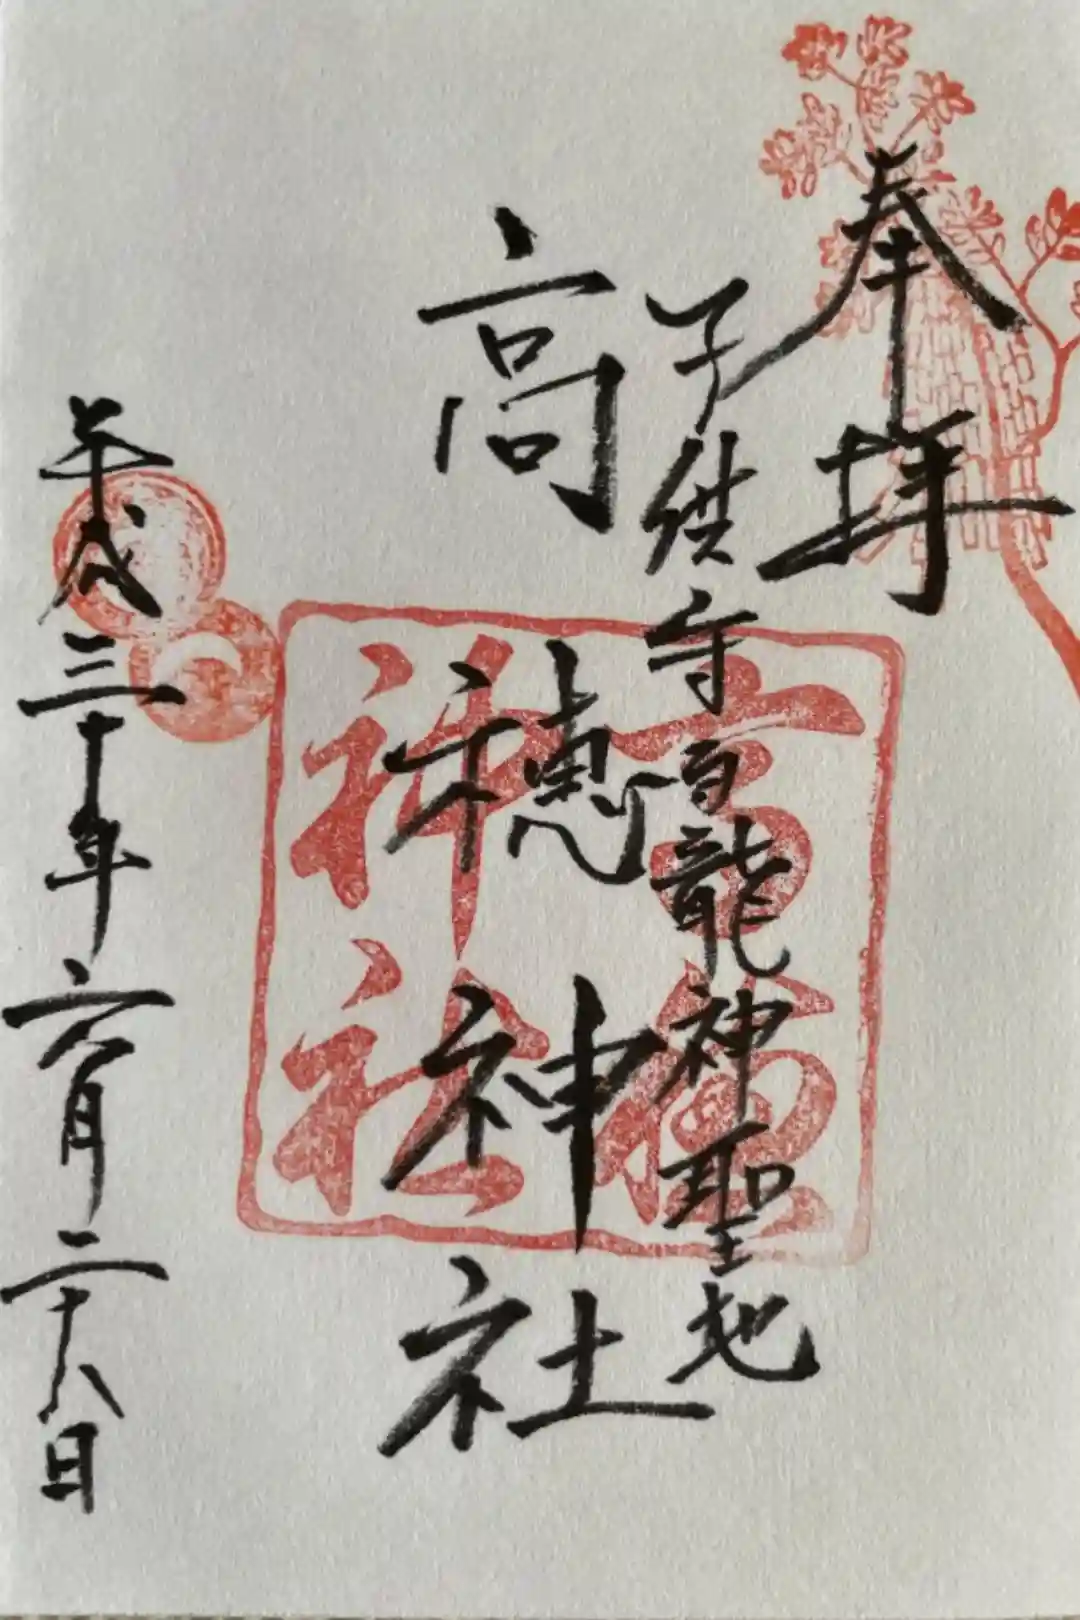 奉拝
子供守白龍神聖地
高穂神社
高穂神社
平成三十年六月二十八日